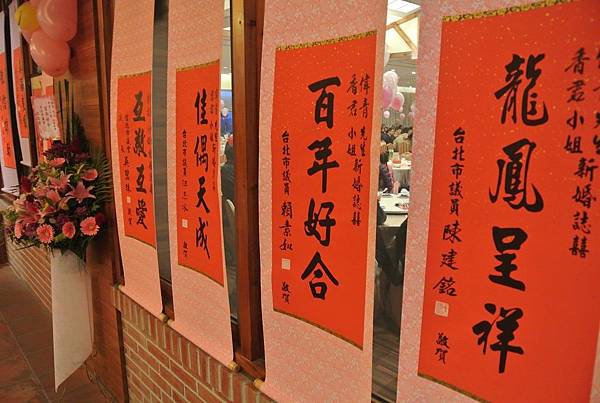 龍鳳呈祥
香君 小姐 新婚誌囍
台北市議員 陳建銘 敬賀
偉青 先生
香君 小姐 新婚誌囍
百年好合
台北市議員 賴素如
敬賀
佳偶天成
台北市議員
敬賀
互敬互愛
敬賀